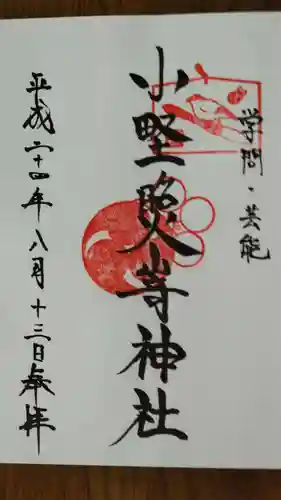 学問・芸能
小野照崎神社
平成二十四年八月十三日奉拝